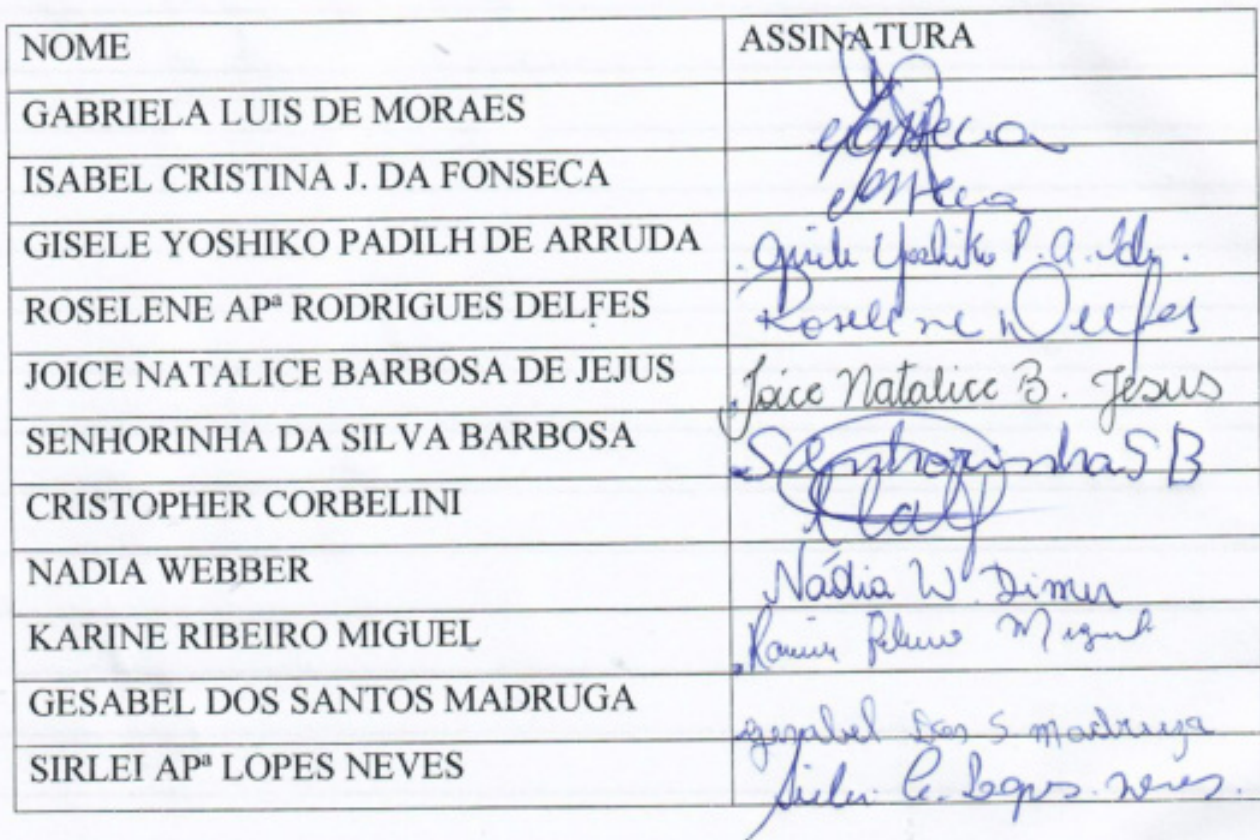 NOME ASSINATURA
GABRIELA LUIS DE MORAES
ISABEL CRISTINA J. DA FONSECA
GISELE YOSHIKO PADILH DE ARRUDA Gisele Yoshiko P. A.
ROSELENE APª RODRIGUES DELFES Roselene Delfes
JOICE NATALICE BARBOSA DE JEJUS Joice Natalice B. Jesus
SENHORINHA DA SILVA BARBOSA Senhorinha S B
CRISTOPHER CORBELINI
NADIA WEBBER Nádia W. Dimer
KARINE RIBEIRO MIGUEL Karine Ribeiro Miguel
GESABEL DOS SANTOS MADRUGA gesabel dos S madruga
SIRLEI APª LOPES NEVES Sirlei Ap. Lopes neves.